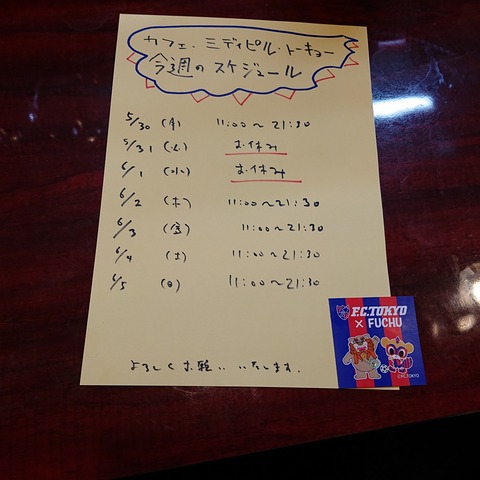 カフェ・ミディピル・トーキョー
今週のスケジュール
5/30 (月) 11:00～21:30
5/31 (火) お休み
6/1 (水) お休み
6/2 (木) 11:00～21:30
6/3 (金) 11:00～21:30
6/4 (土) 11:00～21:30
6/5 (日) 11:00～21:30
よろしくお願いいたします.
F.C.TOKYO
× FUCHU
©F.C.TOKYO